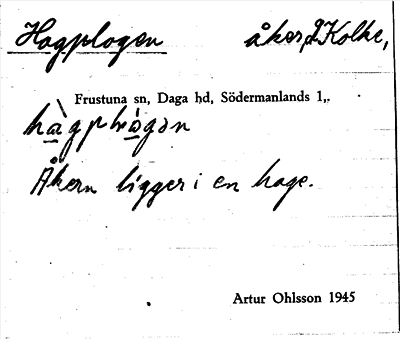 Hagplogen åker, Kolke,
Frustuna sn, Daga hd, Södermanlands l,.
Åkern ligger i en hage.
Artur Ohlsson 1945